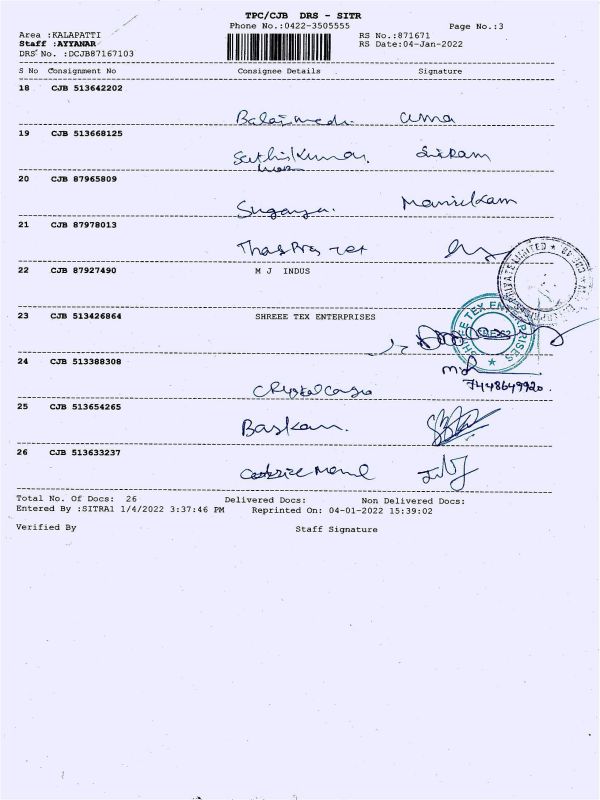 TPC/CJB DRS - SITR
Phone No.:0422-3505555 Page No.:3
Area :KALAPATTI RS No.:871671
Staff :AYYANAR RS Date:04-Jan-2022
DRS No. :DCJB87167103
S No Consignment No Consignee Details Signature
18 CJB 513642202
Uma
19 CJB 513668125
Sathiskumar. Sriram
20 CJB 87965809
Suganya. Manickam
21 CJB 87978013
22 CJB 87927490 M J INDUS
PRIVATE LIMITED ★
23 CJB 513426864 SHREEE TEX ENTERPRISES
SHREEE TEX ENTERPRISES ★
24 CJB 513388308
7448649920.
Crystal Cargo
25 CJB 513654265
Baskaran.
26 CJB 513633237
Total No. Of Docs: 26 Delivered Docs: Non Delivered Docs:
Entered By :SITRA1 1/4/2022 3:37:46 PM Reprinted On: 04-01-2022 15:39:02
Verified By Staff Signature